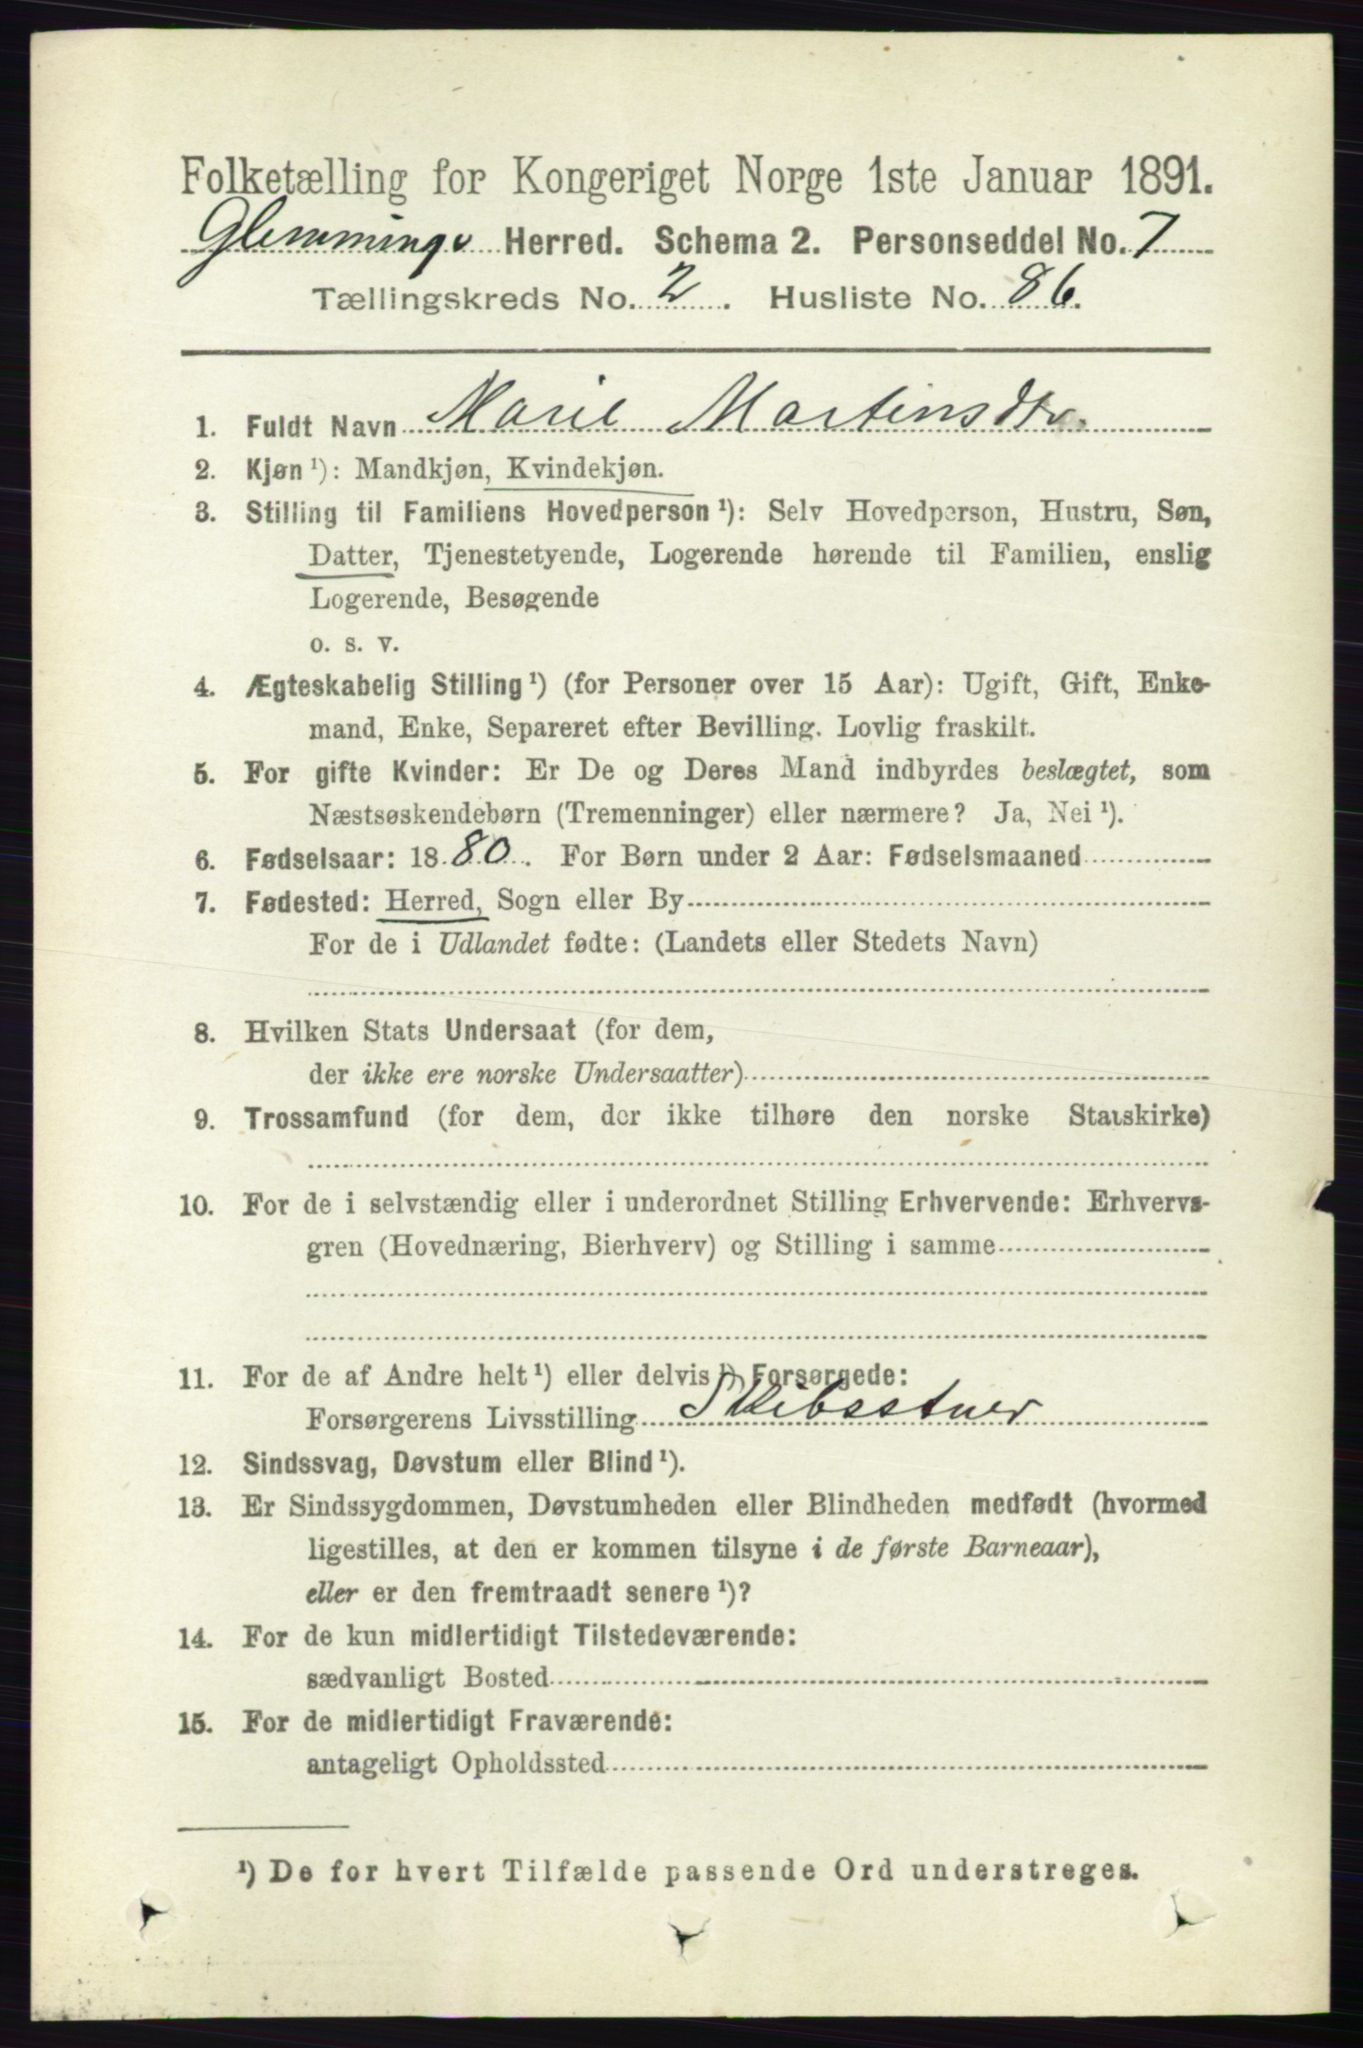 Folketælling for Kongeriget Norge 1ste Januar 1891.
Glemminge Herred. Schema 2. Personseddel No. 7
Tællingskreds No. 2. Husliste No. 86.
1. Fuldt Navn Marie Martinsdtr.
2. Kjøn ¹): Mandkjøn, Kvindekjøn.
3. Stilling til Familiens Hovedperson ¹): Selv Hovedperson, Hustru, Søn,
Datter, Tjenestetyende, Logerende hørende til Familien, enslig
Logerende, Besøgende
o. s. v.
4. Ægteskabelig Stilling ¹) (for Personer over 15 Aar): Ugift, Gift, Enke-
mand, Enke, Separeret efter Bevilling. Lovlig fraskilt.
5. For gifte Kvinder: Er De og Deres Mand indbyrdes beslægtet, som
Næstsøskendebørn (Tremenninger) eller nærmere? Ja, Nei ¹).
6. Fødselsaar: 1880. For Børn under 2 Aar: Fødselsmaaned
7. Fødested: Herred, Sogn eller By
For de i Udlandet fødte: (Landets eller Stedets Navn)
8. Hvilken Stats Undersaat (for dem,
der ikke ere norske Undersaatter)
9. Trossamfund (for dem, der ikke tilhøre den norske Statskirke)
10. For de i selvstændig eller i underordnet Stilling Erhvervende: Erhvervs-
gren (Hovednæring, Bierhverv) og Stilling i samme
11. For de af Andre helt ¹) eller delvis ¹) Forsørgede:
Forsørgerens Livsstilling Skibsstuer
12. Sindssvag, Døvstum eller Blind ¹).
13. Er Sindssygdommen, Døvstumheden eller Blindheden medfødt (hvormed
ligestilles, at den er kommen tilsyne i de første Barneaar),
eller er den fremtraadt senere ¹)?
14. For de kun midlertidigt Tilstedeværende:
sædvanligt Bosted
15. For de midlertidigt Fraværende:
antageligt Opholdssted
¹) De for hvert Tilfælde passende Ord understreges.